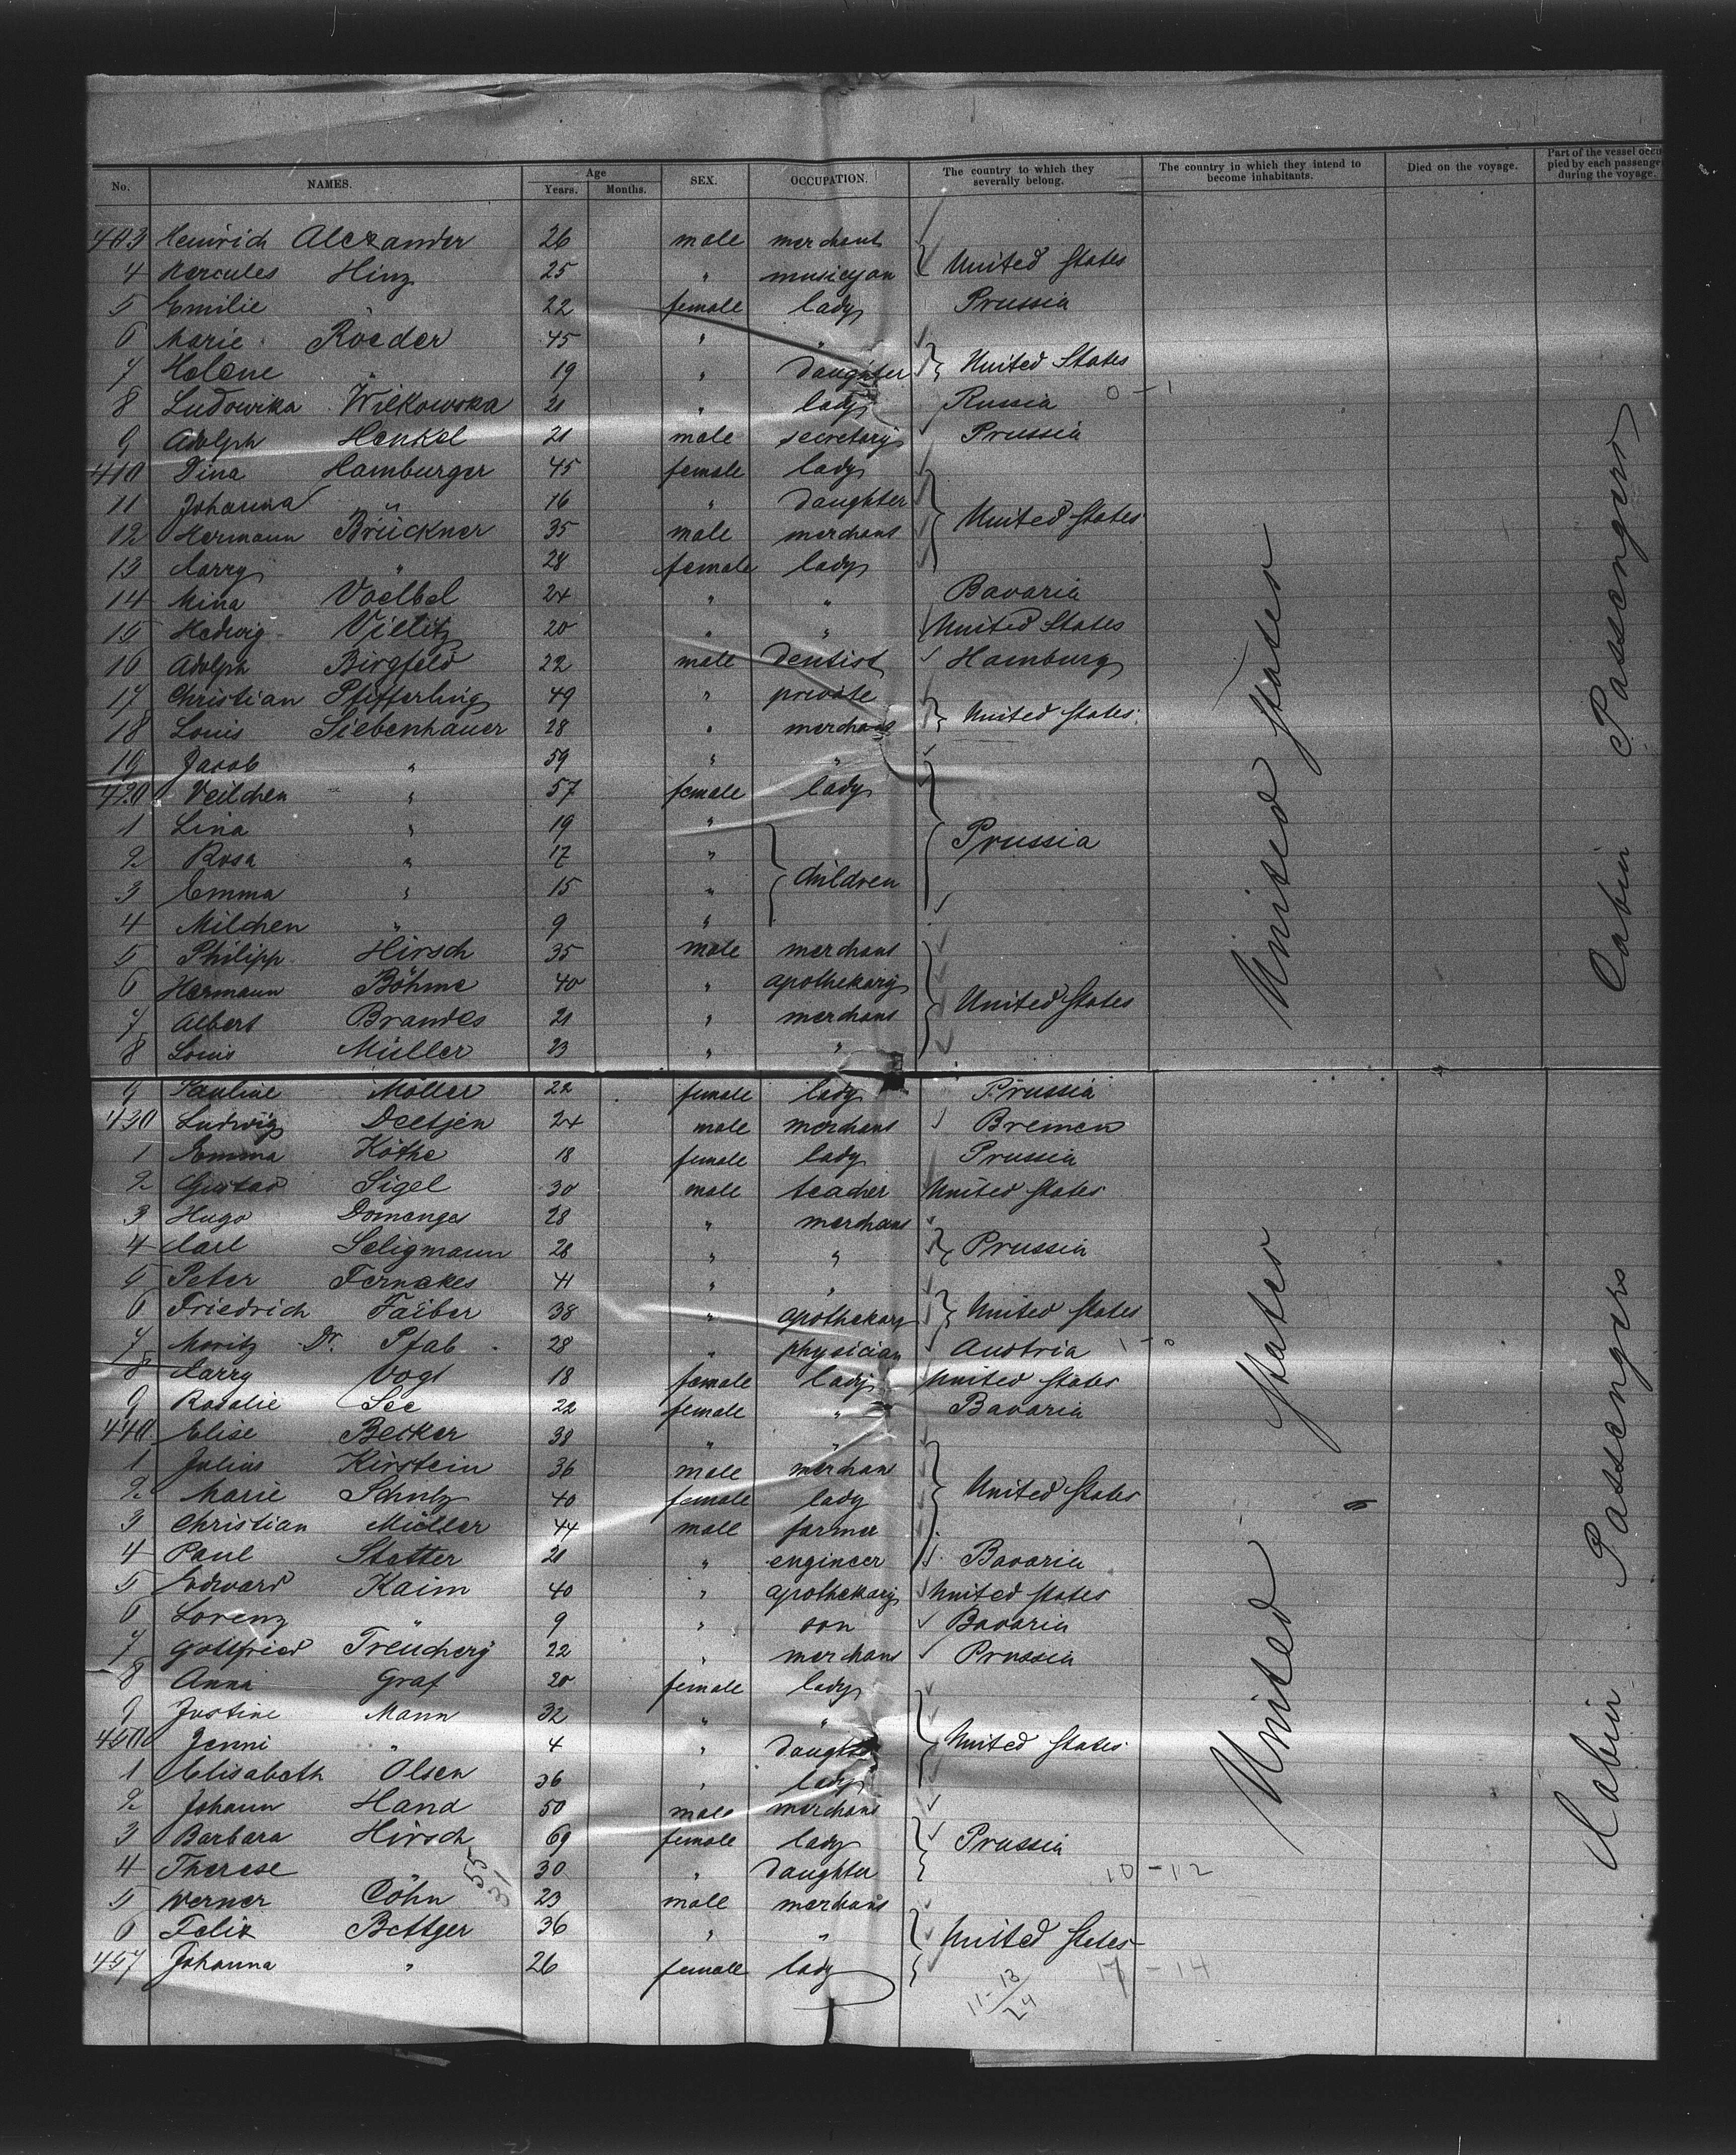 No. NAMES. Age Years. Months. SEX. OCCUPATION. The country to which they severally belong. The country in which they intend to become inhabitants. Died on the voyage. Part of the vessel occupied by each passenger during the voyage.
403 Heinrich Alexander 26 male merchant
4 Hercules Hinz 25 " musicyan } United States
5 Emilie " 22 female lady Prussia
6 Marie Roeder 45 " "
7 Helene " 19 " daughter } United States
8 Ludowika Wilkowska 21 " lady Russia 0 - 1
9 Adolph Henkel 21 male secretary Prussia
410 Dina Hamburger 45 female lady
11 Johanna " 16 " daughter } United States
12 Hermann Brückner 35 male merchant
13 Carry " 28 female lady
14 Mina Voelbel 24 " " Bavaria
15 Hedwig Vielitz 20 " " United States
16 Adolph Birgfeld 22 male dentist Hamburg
17 Christian Pfifferling 49 " private } United States
18 Louis Siebenhauer 28 " merchant
19 Jacob " 59 " "
420 Veilchen " 57 female lady
1 Lina " 19 " } Prussia
2 Rosa " 17 " } children
3 Emma " 15 "
4 Milchen " 9 "
5 Philipp Hirsch 35 male merchant
6 Hermann Böhme 40 " apothekary } United States
7 Albert Brandes 21 " merchant
8 Louis Müller 23 " "
9 Pauline Möller 22 female lady Prussia
430 Ludwig Deetjen 24 male merchant Bremen
1 Emma Köthe 18 female lady Prussia
2 Gustav Sigel 30 male teacher United States
3 Hugo Domenges 28 " merchant
4 Carl Seligmann 28 " " } Prussia
5 Peter Fernekes 41 " "
6 Friedrich Faiber 38 " apothekary } United States
7 Moritz Dr. Pfab 28 " physician Austria 1 - 0
8 Carry Vogt 18 female lady United States
9 Rosalie See 22 female " Bavaria
440 Elise Becker 38 " "
1 Julius Kirstein 36 male merchant
2 Marie Schulz 40 female lady } United States
3 Christian Müller 44 male farmer
4 Paul Stetter 21 " engineer Bavaria
5 Edward Kaim 40 " apothekary United States
6 Lorenz " 9 " son Bavaria
7 Gottfried Treuberg 22 " merchant Prussia
8 Anna Graf 20 female lady
9 Justine Mann 32 " "
450 Jenni " 4 " daughter } United States
1 Elisabeth Olsen 36 " lady
2 Johann Hand 50 male merchant
3 Barbara Hirsch 69 female lady } Prussia
4 Therese 30 " daughter 10 - 12
5 Werner Cöhn 23 male merchant
6 Felix Bettger 36 " " } United States
457 Johanna " 26 female lady
17 - 14
11-13
24
55
31
United States
United States
Cabin Passengers
Cabin Passengers